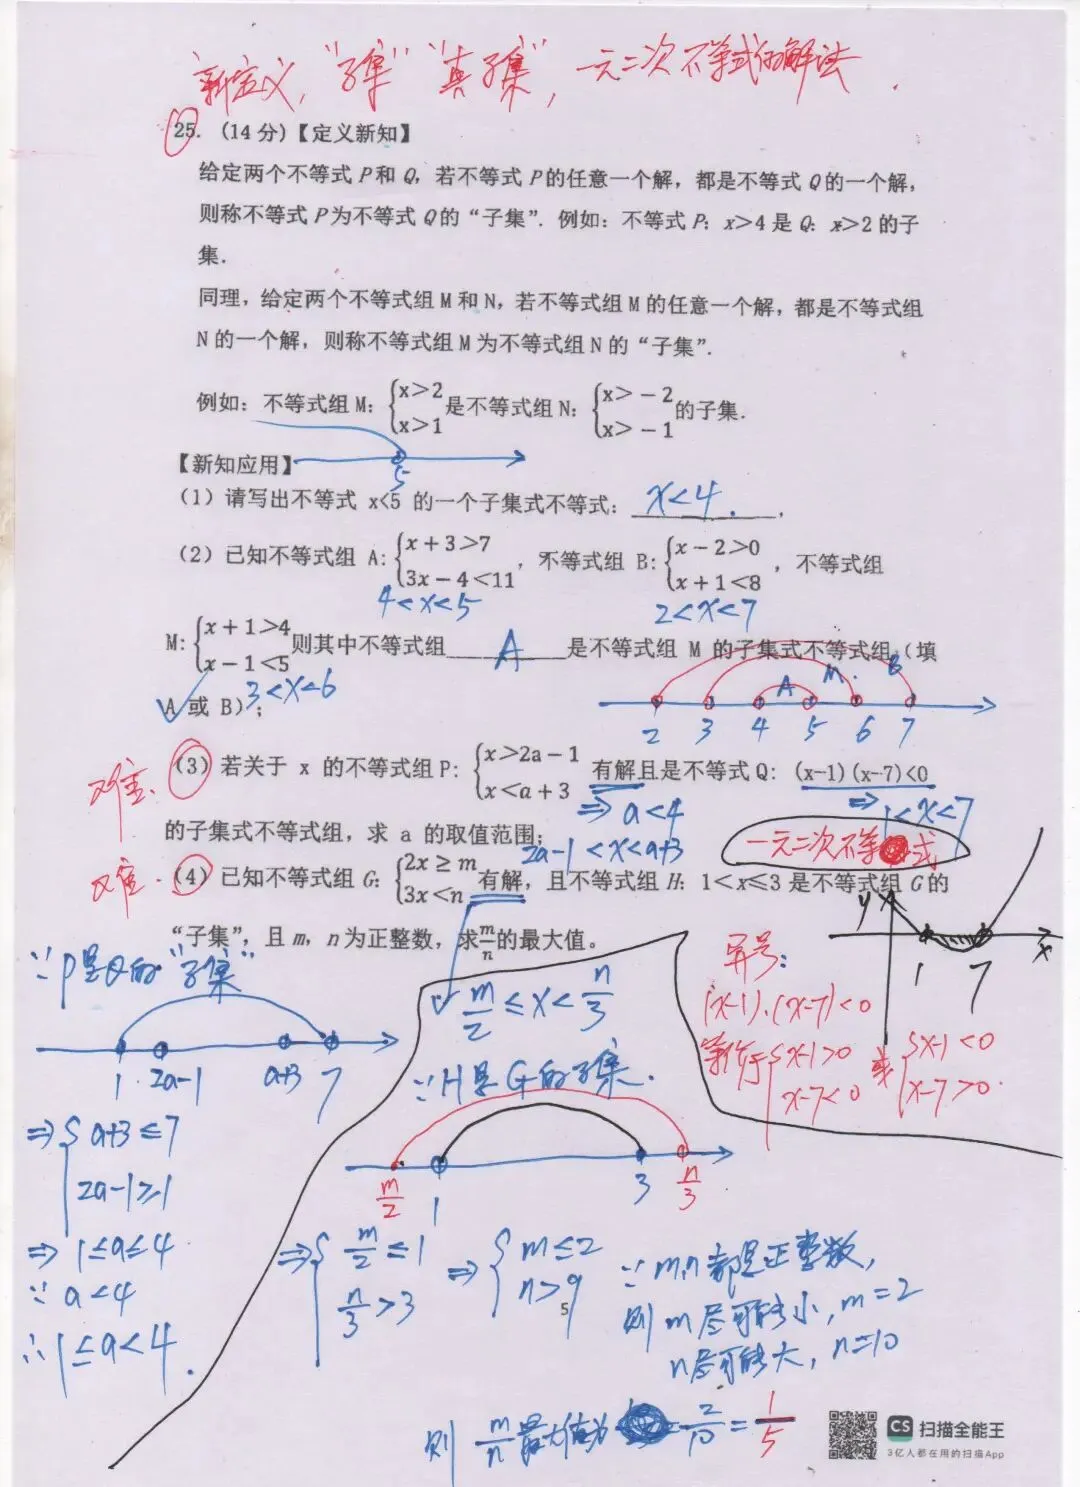 新定义，“子集”“真子集”，一元二次不等式的解法．
25.（14 分）【定义新知】
给定两个不等式 P 和 Q，若不等式 P 的任意一个解，都是不等式 Q 的一个解，
则称不等式 P 为不等式 Q 的“子集”．例如：不等式 P：x>4 是 Q：x>2 的子
集．
同理，给定两个不等式组 M 和 N，若不等式组 M 的任意一个解，都是不等式组
N 的一个解，则称不等式组 M 为不等式组 N 的“子集”．
例如：不等式组 M：{x>2 x>1 是不等式组 N：{x>－2 x>－1 的子集．
【新知应用】
5
（1）请写出不等式 x<5 的一个子集式不等式：x<4．，
（2）已知不等式组 A：{x＋3>7 3x－4<11，不等式组 B：{x－2>0 x＋1<8，不等式组
4<x<5 2<x<7
M：{x＋1>4 x－1<5 则其中不等式组 A 是不等式组 M 的子集式不等式组（填
3<x<6
A 或 B）；
A M． B
2 3 4 5 6 7
难．（3）若关于 x 的不等式组 P：{x>2a－1 x<a＋3 有解且是不等式 Q：(x-1)(x-7)<0
⇒ a<4 ⇒ 1<x<7
的子集式不等式组，求 a 的取值范围；
2a-1<x<a+3 一元二次不等式
难．（4）已知不等式组 G：{2x≥m 3x<n 有解，且不等式组 H：1<x≤3 是不等式组 G 的
“子集”，且 m，n 为正整数，求m/n的最大值。
y x 1 7
∵P是Q的“子集”
1 2a-1 a+3 7
⇒{a+3≤7
2a-1≥1
⇒ 1≤a≤4
∵ a<4
∴1≤a<4．
m/2≤x<n/3
∵H是G的子集．
m/2 1 3 n/3
⇒{m/2≤1 n/3>3 ⇒{m≤2 n>9
∵m,n都是正整数，
则m尽可能小，m=2
n尽可能大，n=10
则 m/n 最大值为 =2/10=1/5
异号：
(x-1)·(x-7)<0
等价于{x-1>0 x-7<0 或{x-1<0 x-7>0．
5
CS 扫描全能王
3亿人都在用的扫描App